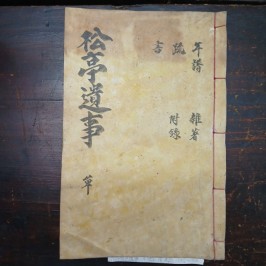 年譜 雜著
疏 附錄
松亭遺事 草